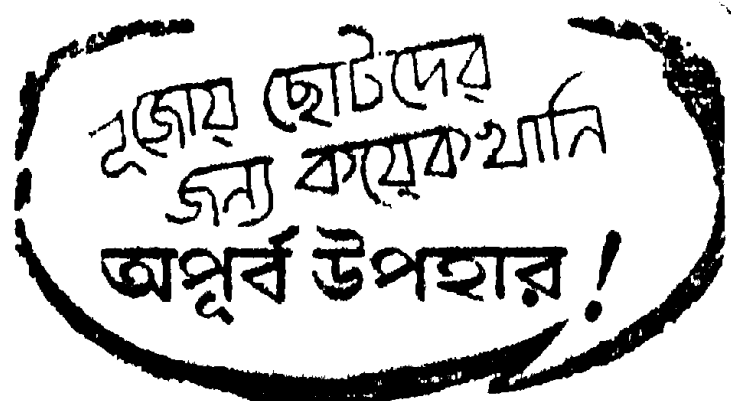 পূজোয় ছোটদের
জন্য কয়েকখানি
অপূর্ব উপহার!